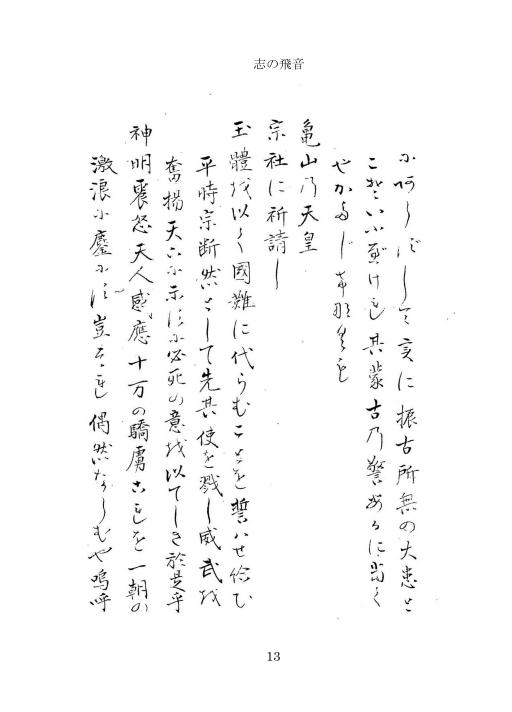 志の飛音
にあらずして実に振古所無の大患と
こそいふべけれ其蒙古乃警あるに当く
亀山乃天皇
宗社に祈請し
玉體を以く國難に代らむことを誓ハせ給ひ
平時宗断然として先其使を戮し威武を
奮揚天下に示すに必死の意を以てしき於是乎
神明震怒天人感應十万の驕虜これを一朝の
激浪に鏖にす豈これ偶然ならむや嗚呼
13